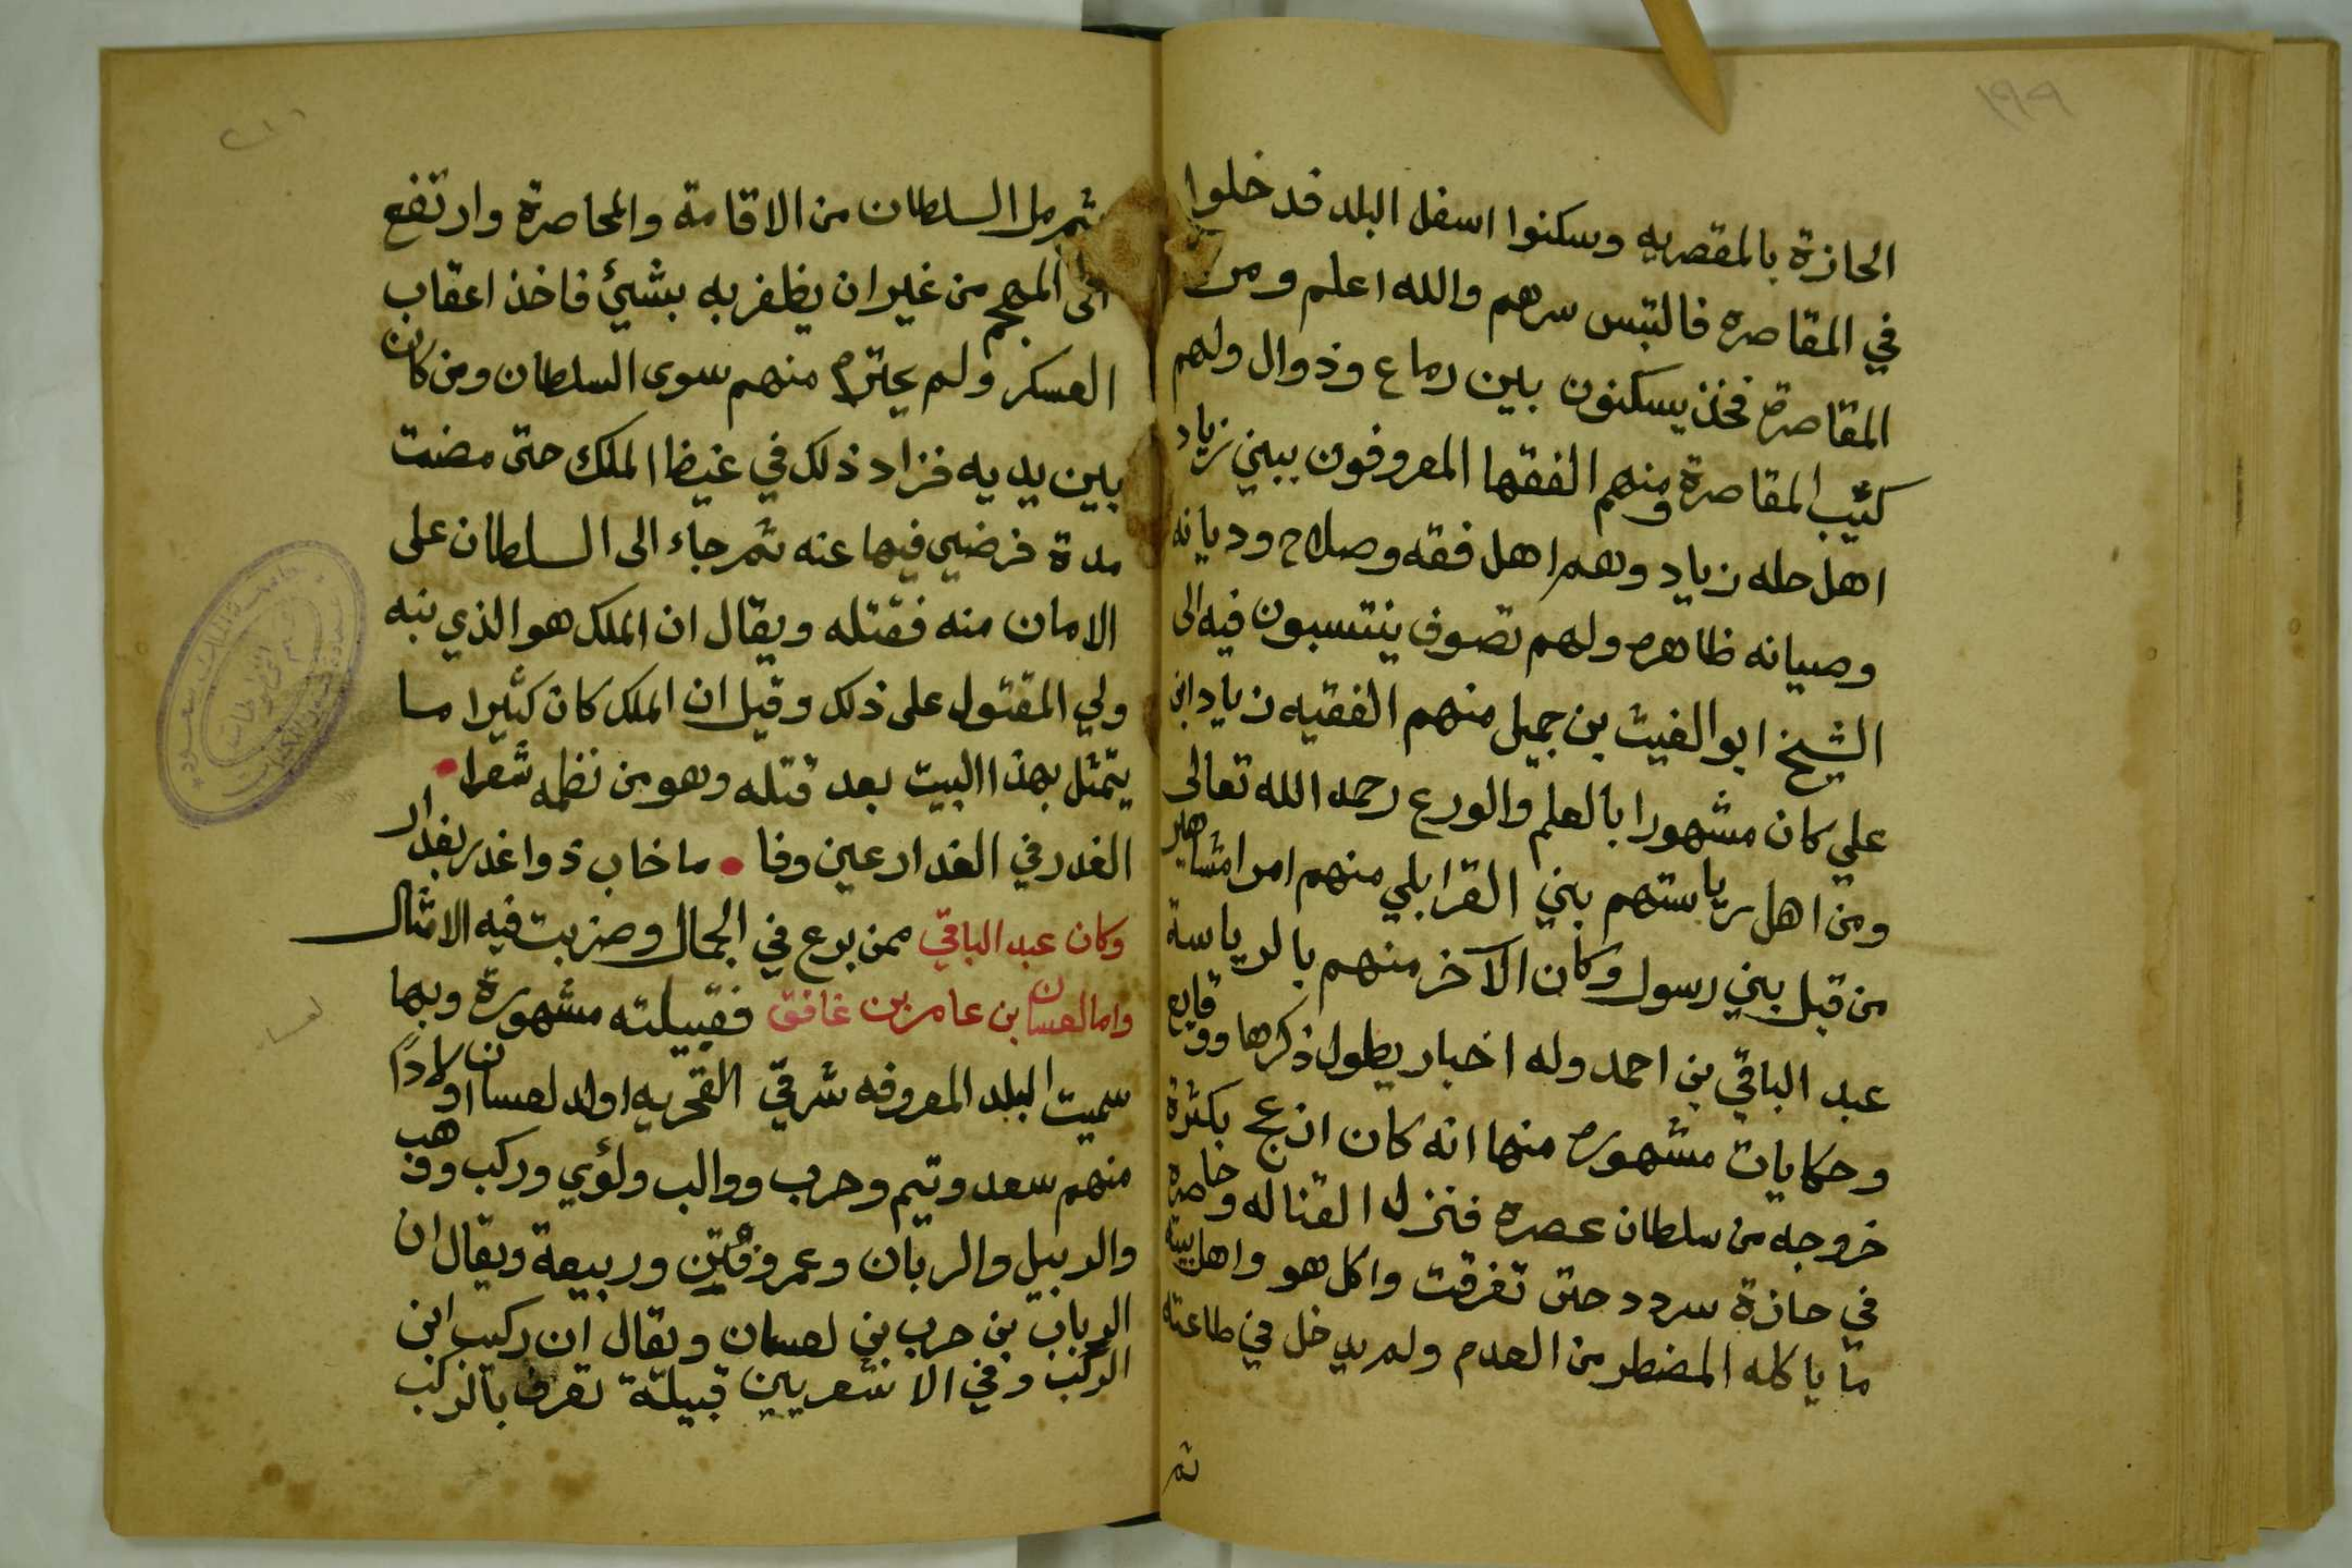 ١٩٩
الحازة بالمقصريه وسكنوا اسفل البلد فدخلوا
في المقاصره فالتبس سرهم والله اعلم ومن
المقاصرة فخذ يسكنون بين رماع وذوال ولهم
كثيب المقاصرة ومنهم الفقها المعروفون ببني زياد
اهل حله زياد وهم اهل فقه وصلاح وديانه
وصيانه ظاهره ولهم تصوف ينتسبون فيه الى
الشيخ ابو الغيث بن جميل منهم الفقيه زياد ابن
علي كان مشهورا بالعلم والورع رحمه الله تعالى
ومن اهل رياستهم بني القرابلي منهم امرا مشاهير
من قبل بني رسول وكان الآخر منهم بالرياسة
عبد الباقي بن احمد وله اخبار يطول ذكرها ووقايع
وحكايات مشهوره منها انه كان انزعج بكثرة
خروجه من سلطان عصره فنزل القتاله وحاصره
في حازة سردد حتى تفرقت واكل هو واهل بيته
ما ياكله المضطر من العدم ولم يدخل في طاعته
ثم
ثم مل السلطان من الاقامة والمحاصرة وارتفع
الى المهجم من غير ان يظفر به بشيئ فاخذ اعقاب
العسكر ولم يحترم منهم سوى السلطان ومن كان
بين يديه فزاد ذلك في غيظ الملك حتى مضت
مدة فرضي فيها عنه ثم جاء الى السلطان على
الامان منه فقتله ويقال ان الملك هو الذي نبه
ولي المقتول على ذلك وقيل ان الملك كان كثيرا ما
يتمثل بهذا البيت بعد قتله وهو من نظمه شعرا
الغدر في الغدار عين وفا ما خاب ذوا غدر بغدار
وكان عبد الباقي ممن برع في الجمال وضربت فيه الامثال
واما لعسان بن عامر بن غافق فقبيلته مشهورة وبها
سميت البلد المعروفه شرقي القحريه اولد لعسان اولاداً
منهم سعد وتيم وحرب ووالب ولؤي وركب ووهب
والدبيل والربان وعمرو وقين وربيعة ويقال ان
الرباب بن حرب بني لعسان ويقال ان ركب ابن
الركب وفي الاشعريين قبيلة تعرف بالركب